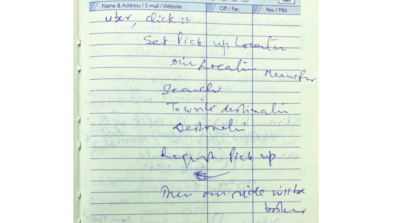 Name & Address / E-mail / Website Off / Fax. Res / Mbl.
uber, click it
Set Pick up Locatin
our Locatin
Search
To write destinatin
Destinatin
Request Pick up
Then our ride will be